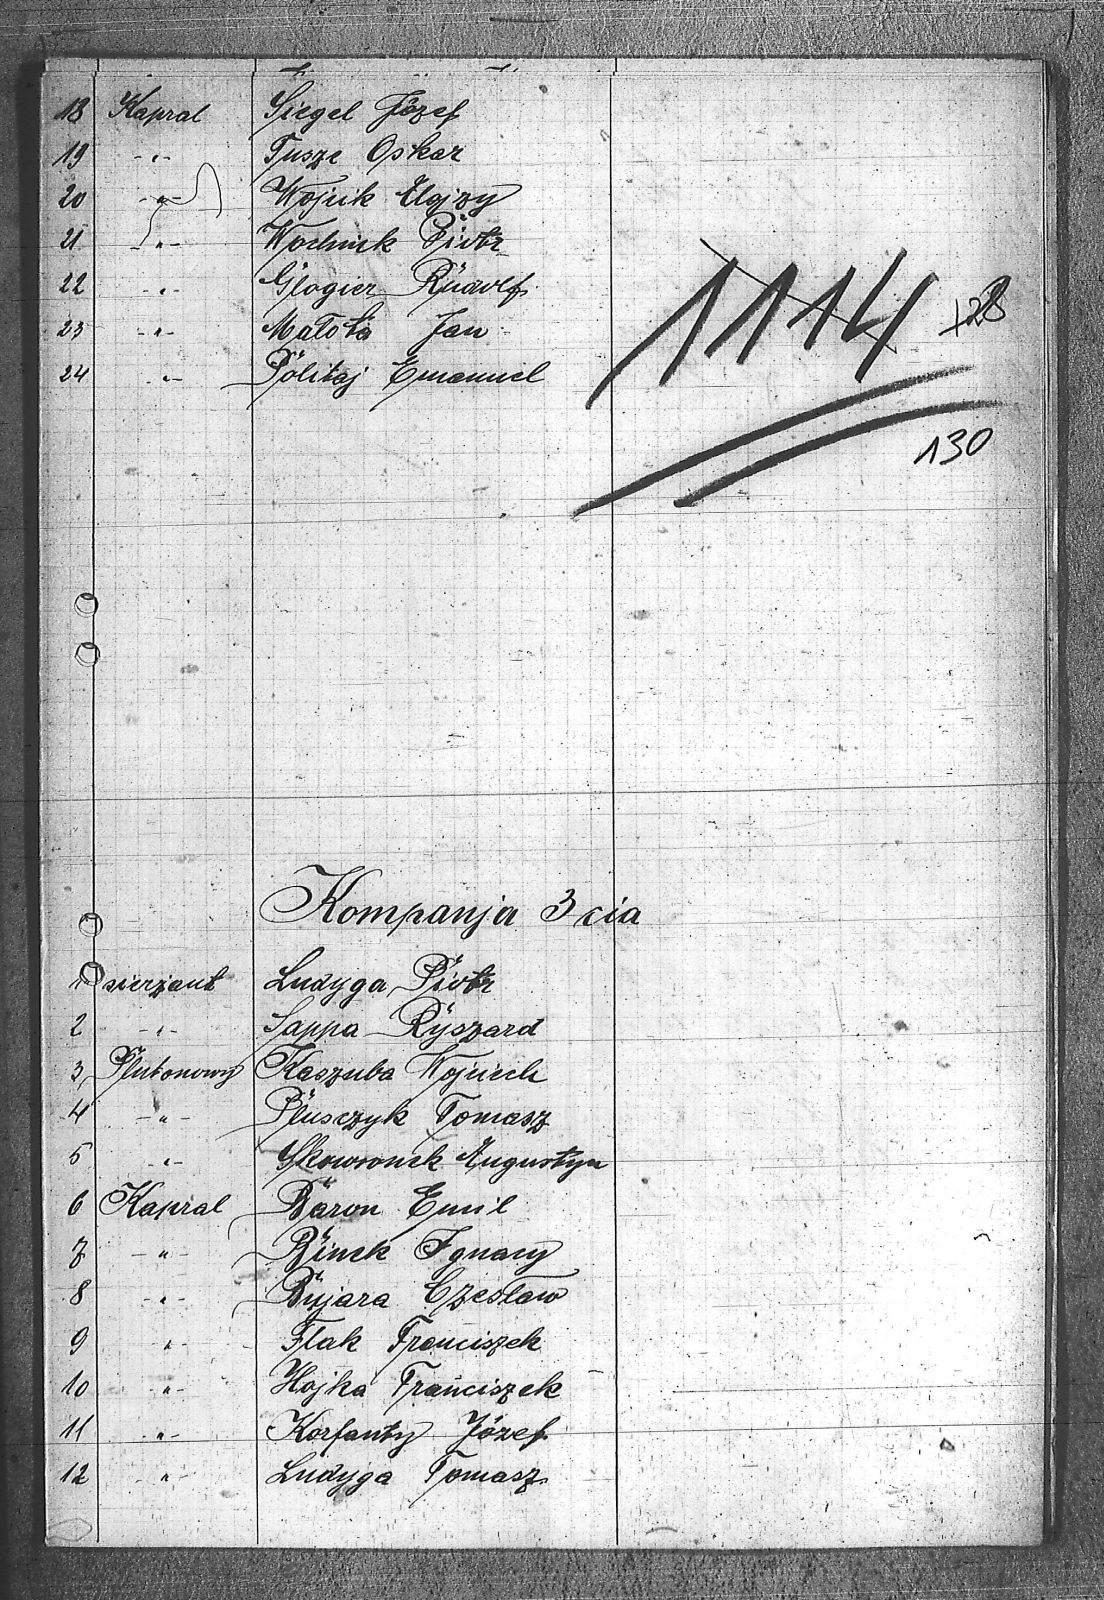 18 Kapral Siegel Józef
19 -"- Tusze Oskar
20 -"- Wojcik Alojzy
21 -"- Wochnik Piotr
22 -"- Glogier Rudolf
23 -"- Małota Jan
24 -"- Politaj Emanuel
1114 +28
130
Kompanja 3 cia
1 sierżant Ludyga Piotr
2 -"- Sappa Ryszard
3, Plutonowy Kaszuba Wojciech
4 -"- Pluszczyk Tomasz
5 -"- Skowronek Augustyn
6 Kapral Baron Emil
7 -"- Binek Ignacy
8 -"- Bujara Czesław
9 " Flak Franciszek
10 -"- Hojka Franciszek
11 -"- Korfanty Józef
12 " Ludyga Tomasz